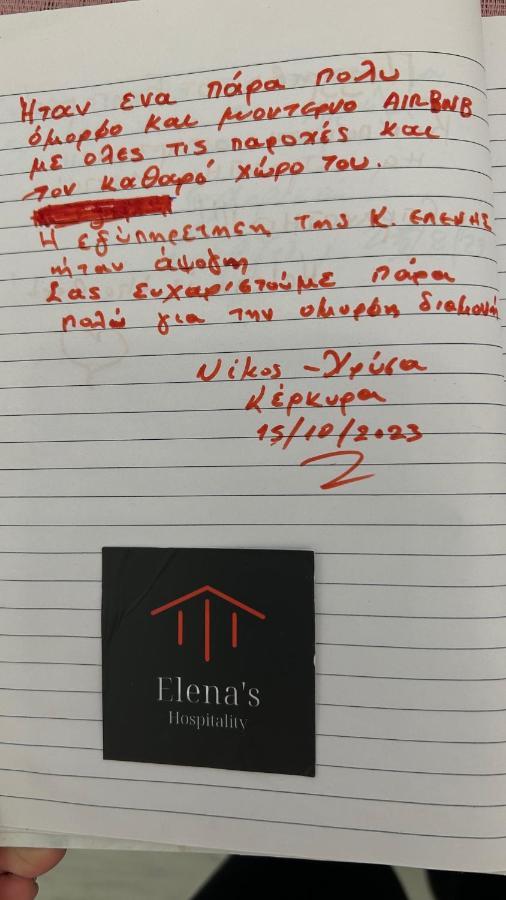 Ηταν ενα πάρα πολυ
όμορφο και μοντερνο AIRBNB
με ολες τις παροχές και
τον καθαρό χώρο του.
Η εξύπηρετηση της Κ. ΕΛΕΝΗΣ
ήταν άψογη
Σας ευχαριστούμε πάρα
πολύ για την ομορφη διαμονή
Νίκος - Χρύσα
Κέρκυρα
15/10/2023
Elena's
Hospitality